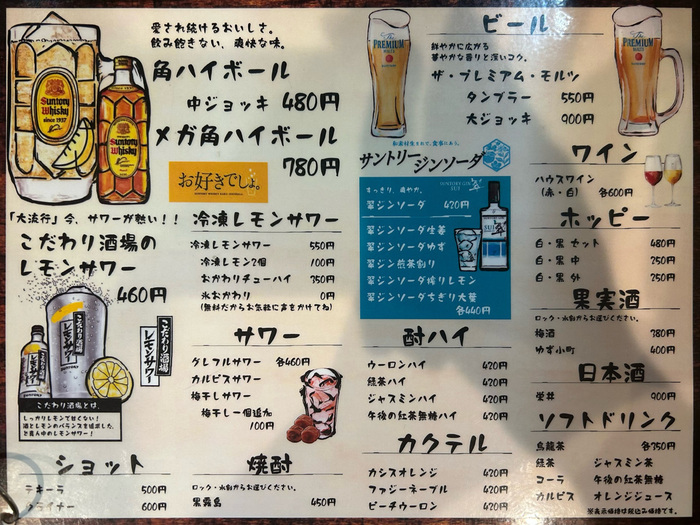 愛され続けるおいしさ。
飲み飽きない、爽快な味。
角ハイボール
中ジョッキ 480円
メガ角ハイボール
780円
Suntory
Whisky
since 1937
Suntory
Whisky
お好きでしょ。
「大流行」今、サワーが熱い！！
こだわり酒場の
レモンサワー
460円
こだわり酒場の
レモンサワー
こだわり酒場とは。
しっかりレモンで甘くない！
酒とレモンのバランスを追求した、
ど真ん中のレモンサワー！
冷凍レモンサワー
冷凍レモンサワー 550円
冷凍レモン2個 100円
おかわりチューハイ 350円
氷おかわり 0円
(無料だからお気軽に声をかけてね)
サワー
グレフルサワー 各460円
カルピスサワー
梅干しサワー
梅干し一個追加
100円
ショット
テキーラ 500円
イライナー 600円
焼酎
ロック・水割からお選びください。
黒霧島 450円
ビール
The
PREMIUM
MALT'S
鮮やかに広がる
華やかな香りと深いコク。
ザ・プレミアム・モルツ
タンブラー 550円
大ジョッキ 900円
The
PREMIUM
MALT'S
サントリージンソーダ
すっきり、爽やか。
SUNTORY GIN
SUI 翠
翠ジンソーダ 420円
翠ジンソーダ生姜
翠ジンソーダゆず
翠ジン煎茶割り
翠ジンソーダ搾りレモン
翠ジンソーダちぎり大葉
各440円
酎ハイ
ウーロンハイ 420円
緑茶ハイ 420円
ジャスミンハイ 420円
午後の紅茶無糖ハイ 420円
カクテル
カシスオレンジ 420円
ファジーネーブル 420円
ピーチウーロン 420円
ワイン
ハウスワイン
(赤・白) 各600円
ホッピー
白・黒 セット 480円
白・黒 中 250円
白・黒 外 250円
果実酒
ロック・水割からお選びください。
梅酒 380円
ゆず小町 400円
日本酒
栄井 900円
ソフトドリンク
烏龍茶 各350円
緑茶 ジャスミン茶
コーラ 午後の紅茶無糖
カルピス オレンジジュース
※表示価格は税込み価格です。